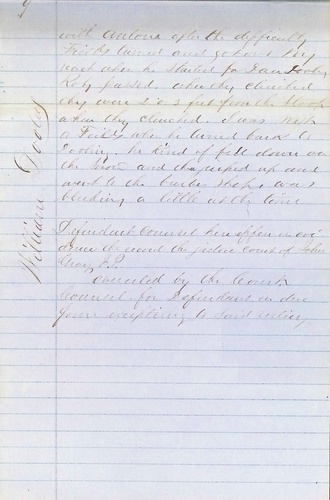 9
William Dooley
with Antone after the difficulty
Fields turned and got one
each when he started for Dan Dooley
Roby passed, when they clinched
they were 2 or 3 feet from the block
when they clinched. I was with
a Fields when he turned back to
Dooley, he kind of fell down on
the and he jumped up and
went to the barber shop, was
bleeding a little at the time
Defendants Counsel here offer in evi-
dence the record the justice court of John
J.P.
overruled by the Court
Counsel for Defendant in due
form excepting to said ruling